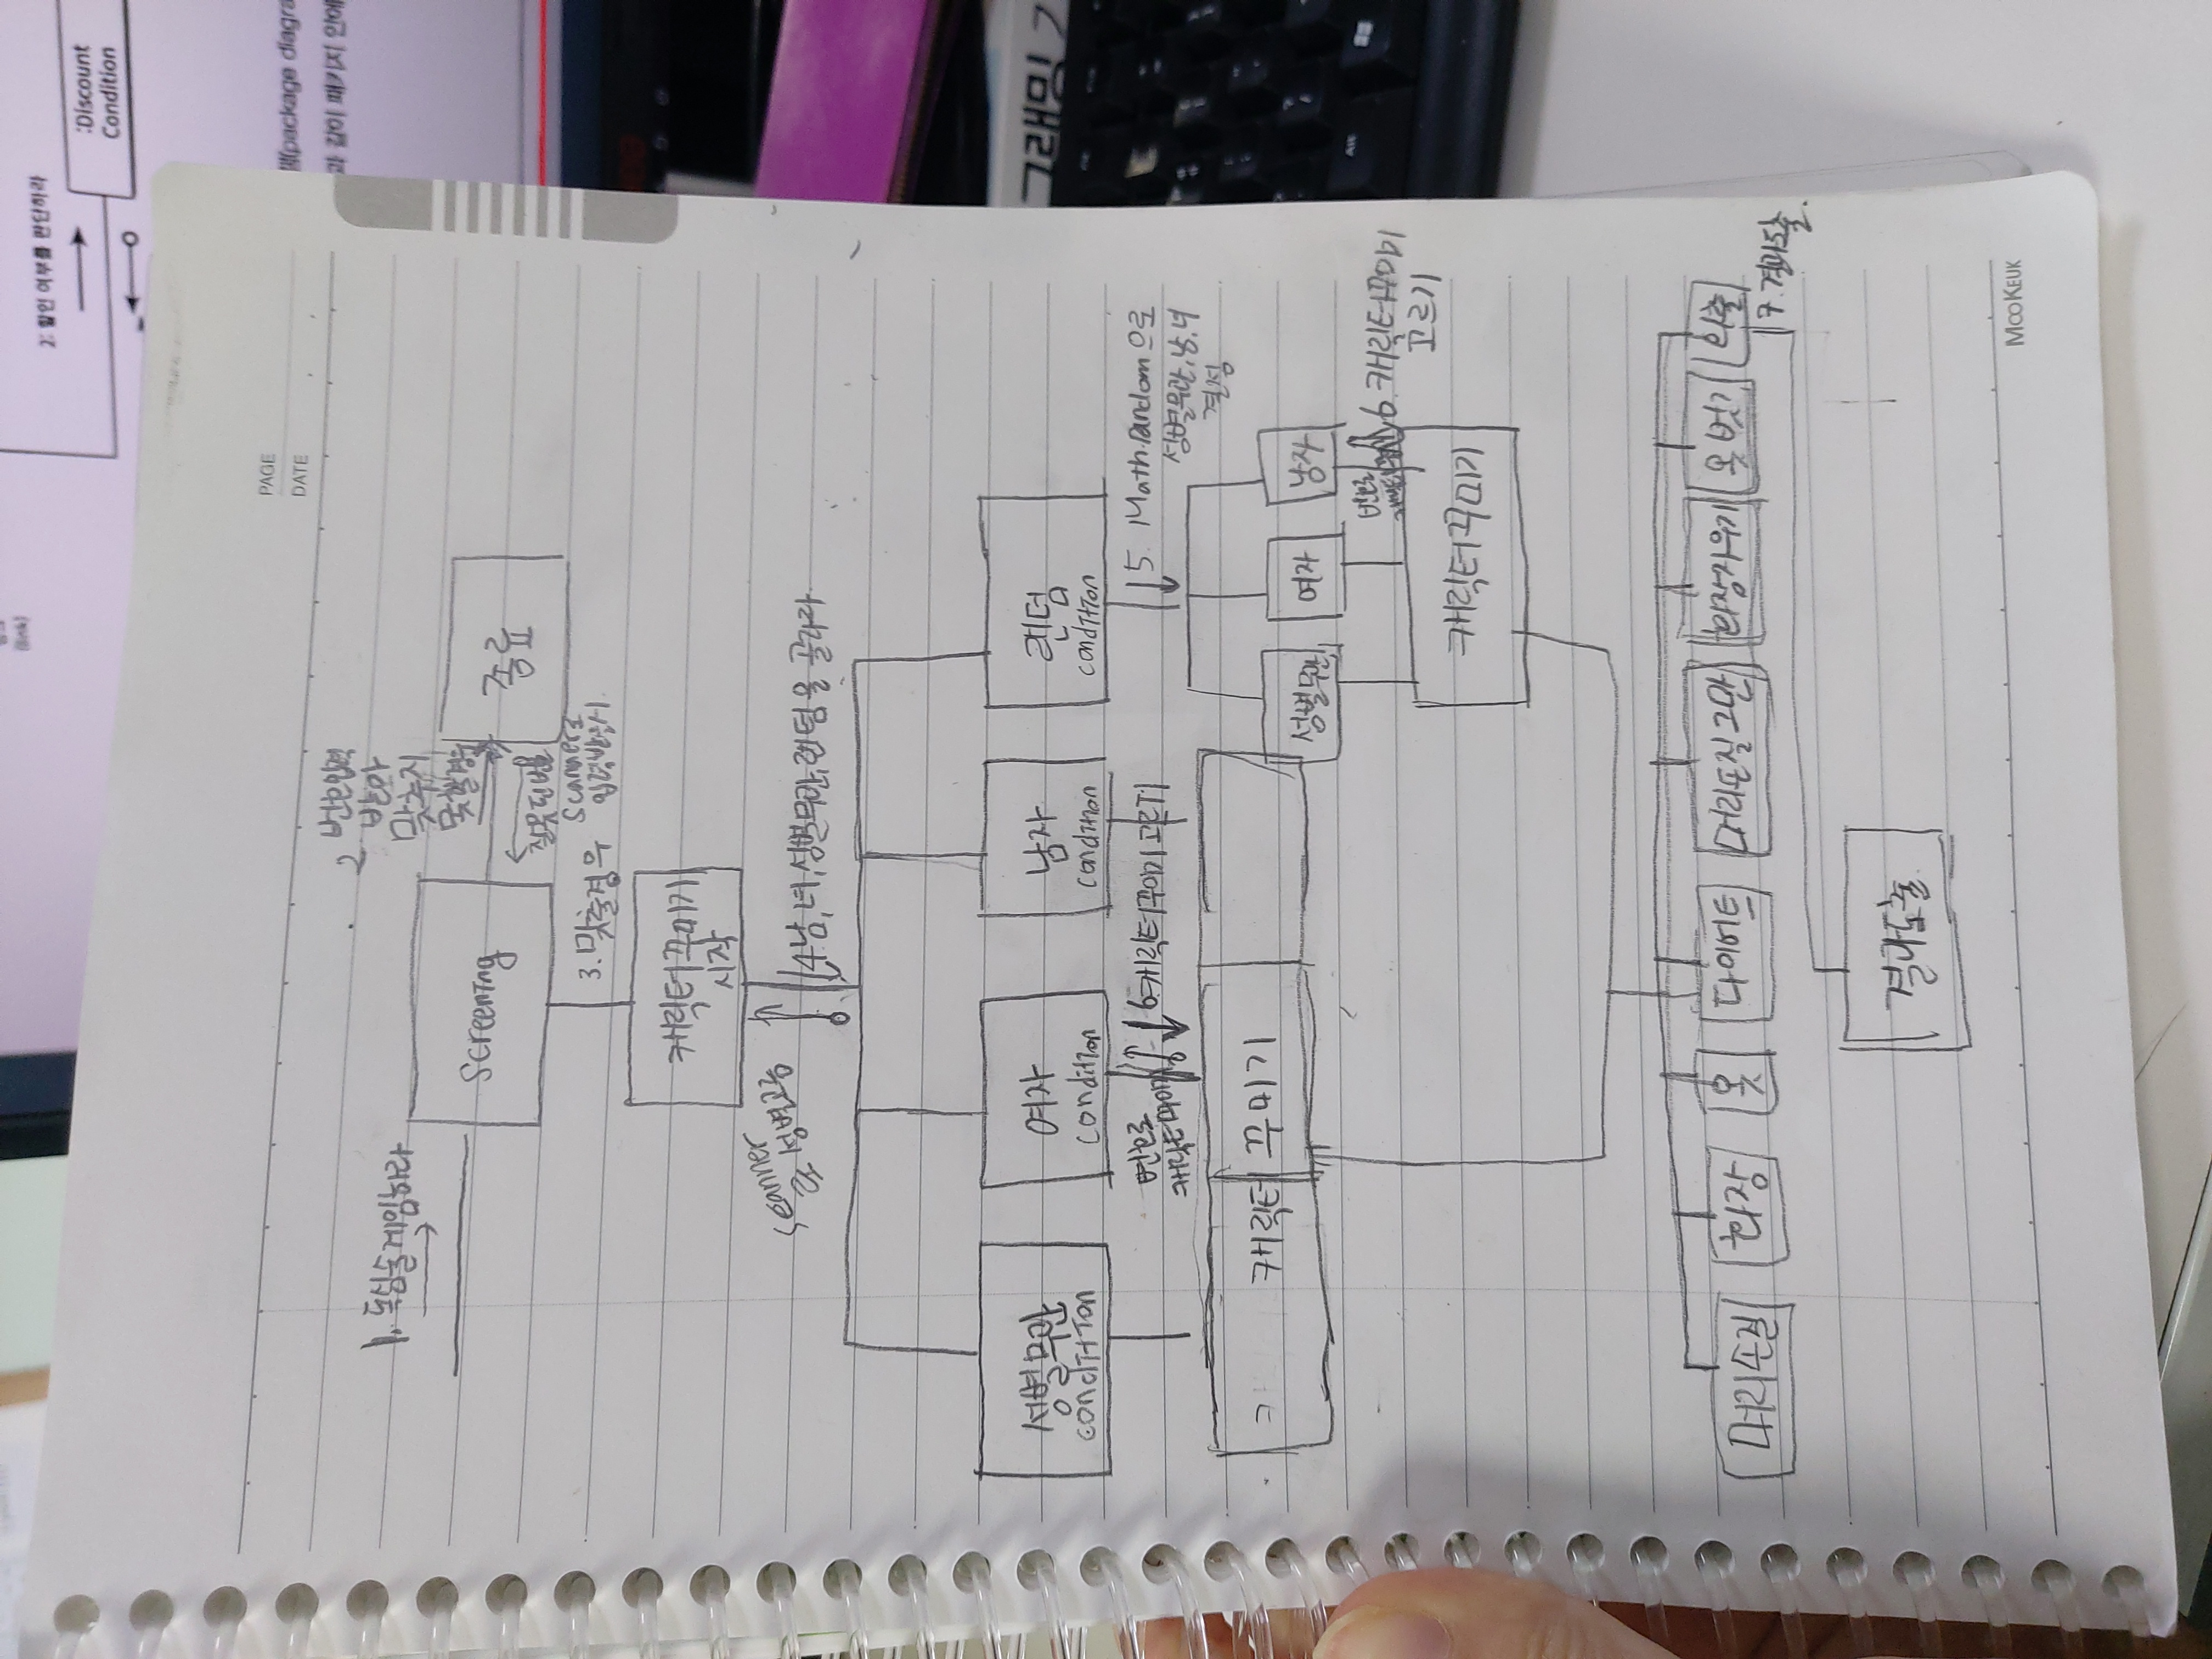 (link)
2: 할인 여부를 판단하라
:Discount
Condition
(package diagra
과 같이 패키지 안에
PAGE
DATE
1. 독심술게임하라
2 번호입력
받아
맞추지
못할경우
Screening
종료
잘못된번호
Scanner로
입력받을시
3. 맞출경우
캐릭터꾸미기
시작
Scanner
로 성별고름
4.남,녀,성별무관,랜덤을 골라라
성별무관
condition
여자
condition
남자
condition
랜덤
condition
번호로
6.캐릭터꾸미기 고르기
5. Math.random으로
성별무관,남,녀
결정
캐릭터 꾸미기
성별무관
여자
남자
번호로
6. 캐릭터꾸미기
고르기
캐릭터꾸미기
머리손질
화장
옷
다이어트
머리손질그만
화장지우기
옷벗기
외출
7. 결과도출.
결과도출.
MOOKEUK
그래밍
Alt